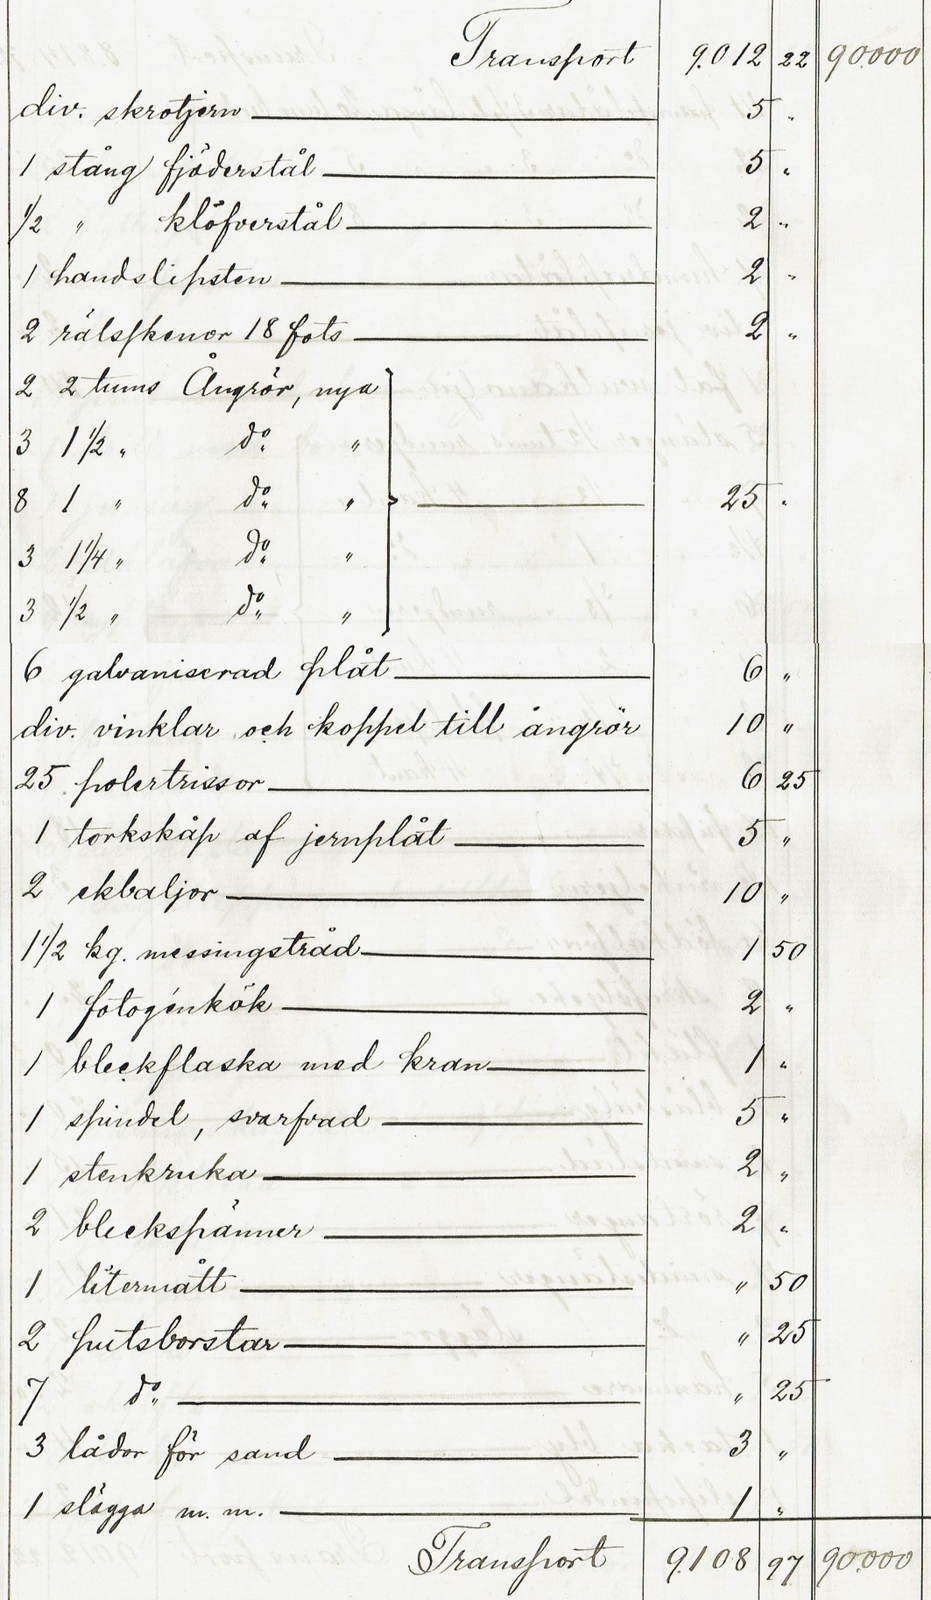 Transport 9.012 22 90000
div. skrotjern 5 "
1 stång fjöderstål 5 "
1/2 " klöfverstål 2 "
1 handslipsten 2 "
2 rälsskenor 18 fots 2 "
2 2 tums Ångrör, nya
3 1 1/2 " do. "
8 1 " do. " 25 "
3 1 1/4 " do. "
3 1/2 " do. "
6 galvaniserad plåt 6 "
div. vinklar och koppel till ångrör 10 "
25 polertrissor 6 25
1 torkskåp af jernplåt 5 "
2 ekbaljor 10 "
1 1/2 kg. messingstråd 1 50
1 fotogénkök 2 "
1 bleckflaska med kran 1 "
1 spindel, svarfvad 5 "
1 stenkruka 2 "
2 bleckspänner 2 "
1 litermått " 50
2 putsborstar " 25
7 do. " 25
3 lådor för sand 3 "
1 slägga m. m. 1 "
Transport 9.108 97 90.000